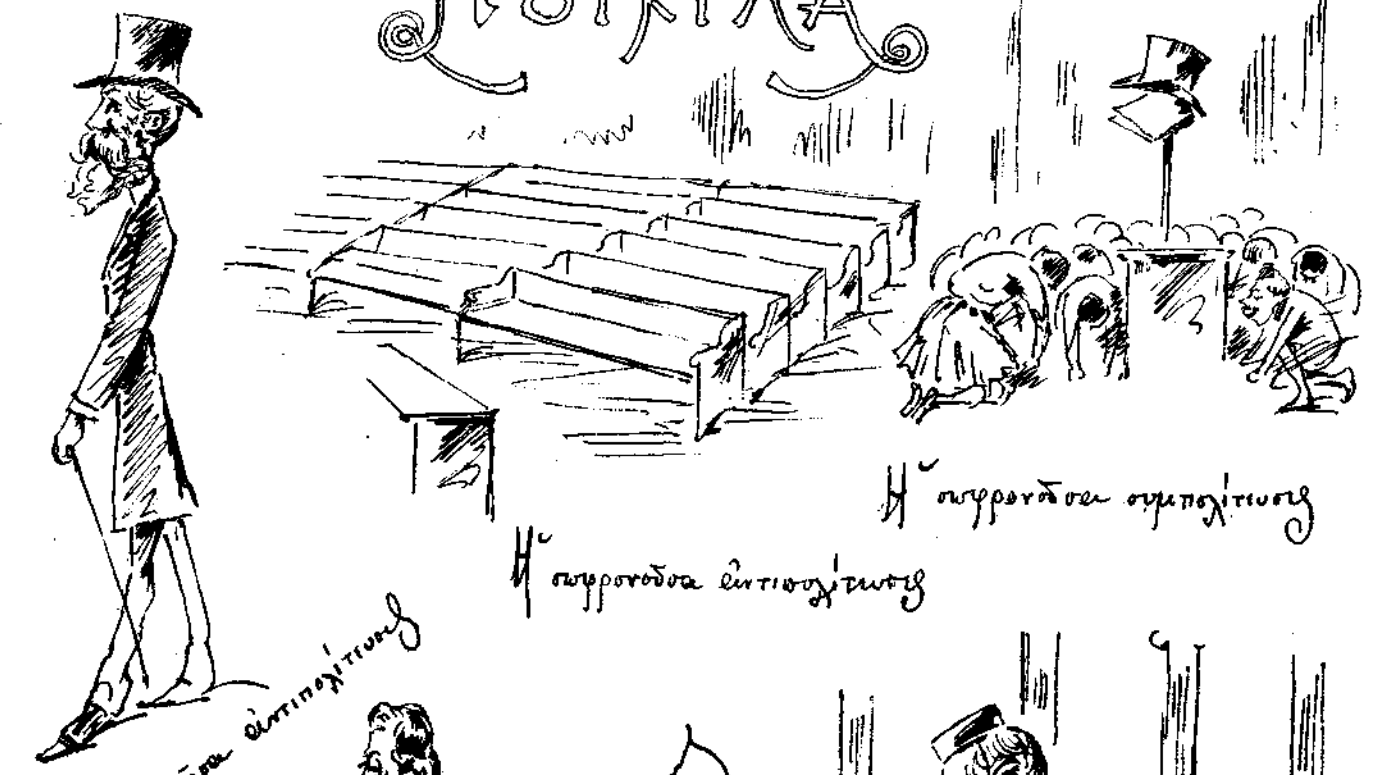 ΠΟΙΚΙΛΑ
Ἡ σωφρονοῦσα συμπολίτευσις
Ἡ σωφρονοῦσα ἀντιπολίτευσις
ἀντιπολίτευσις